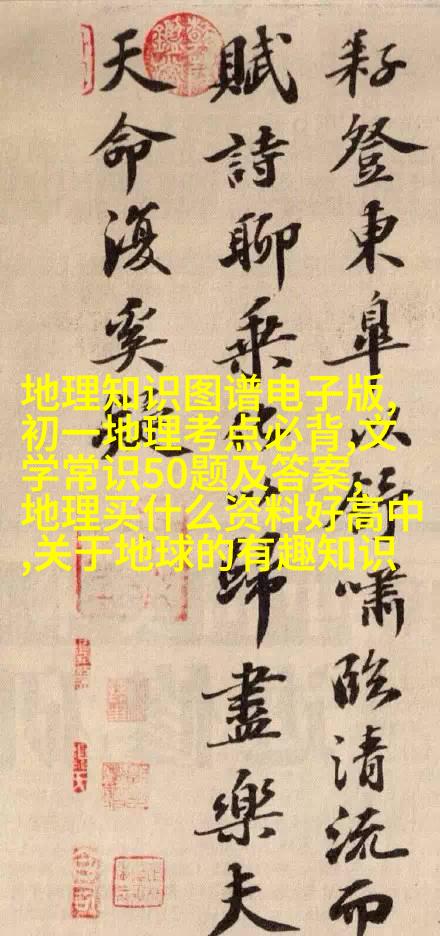 耔登東皐以舒嘯臨清流而
賦詩聊乘化以歸盡樂夫
天命復奚疑
地理知识图谱电子版,
初一地理考点必背,文
学常识50题及答案,
地理买什么资料好高中
,关于地球的有趣知识